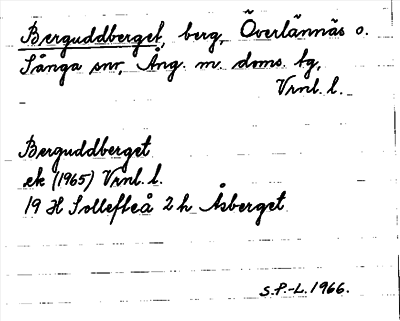 Berguddberget, berg, Överlännäs o.
Sånga snr, Ång. m. doms. tg,
Vrnl. l.
Berguddberget
ek (1965) Vrnl. l.
19 H Sollefteå 2 h Åsberget
S.P.-L. 1966.